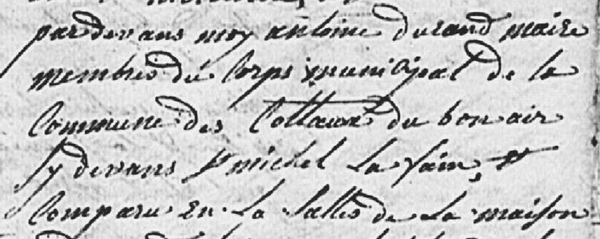 par devans moy antoine durand maire
membres du Corps municipal de la
Commune des Cottaux du bon air
sy devans st michel la faim, est
Comparu En La Salles de La maison